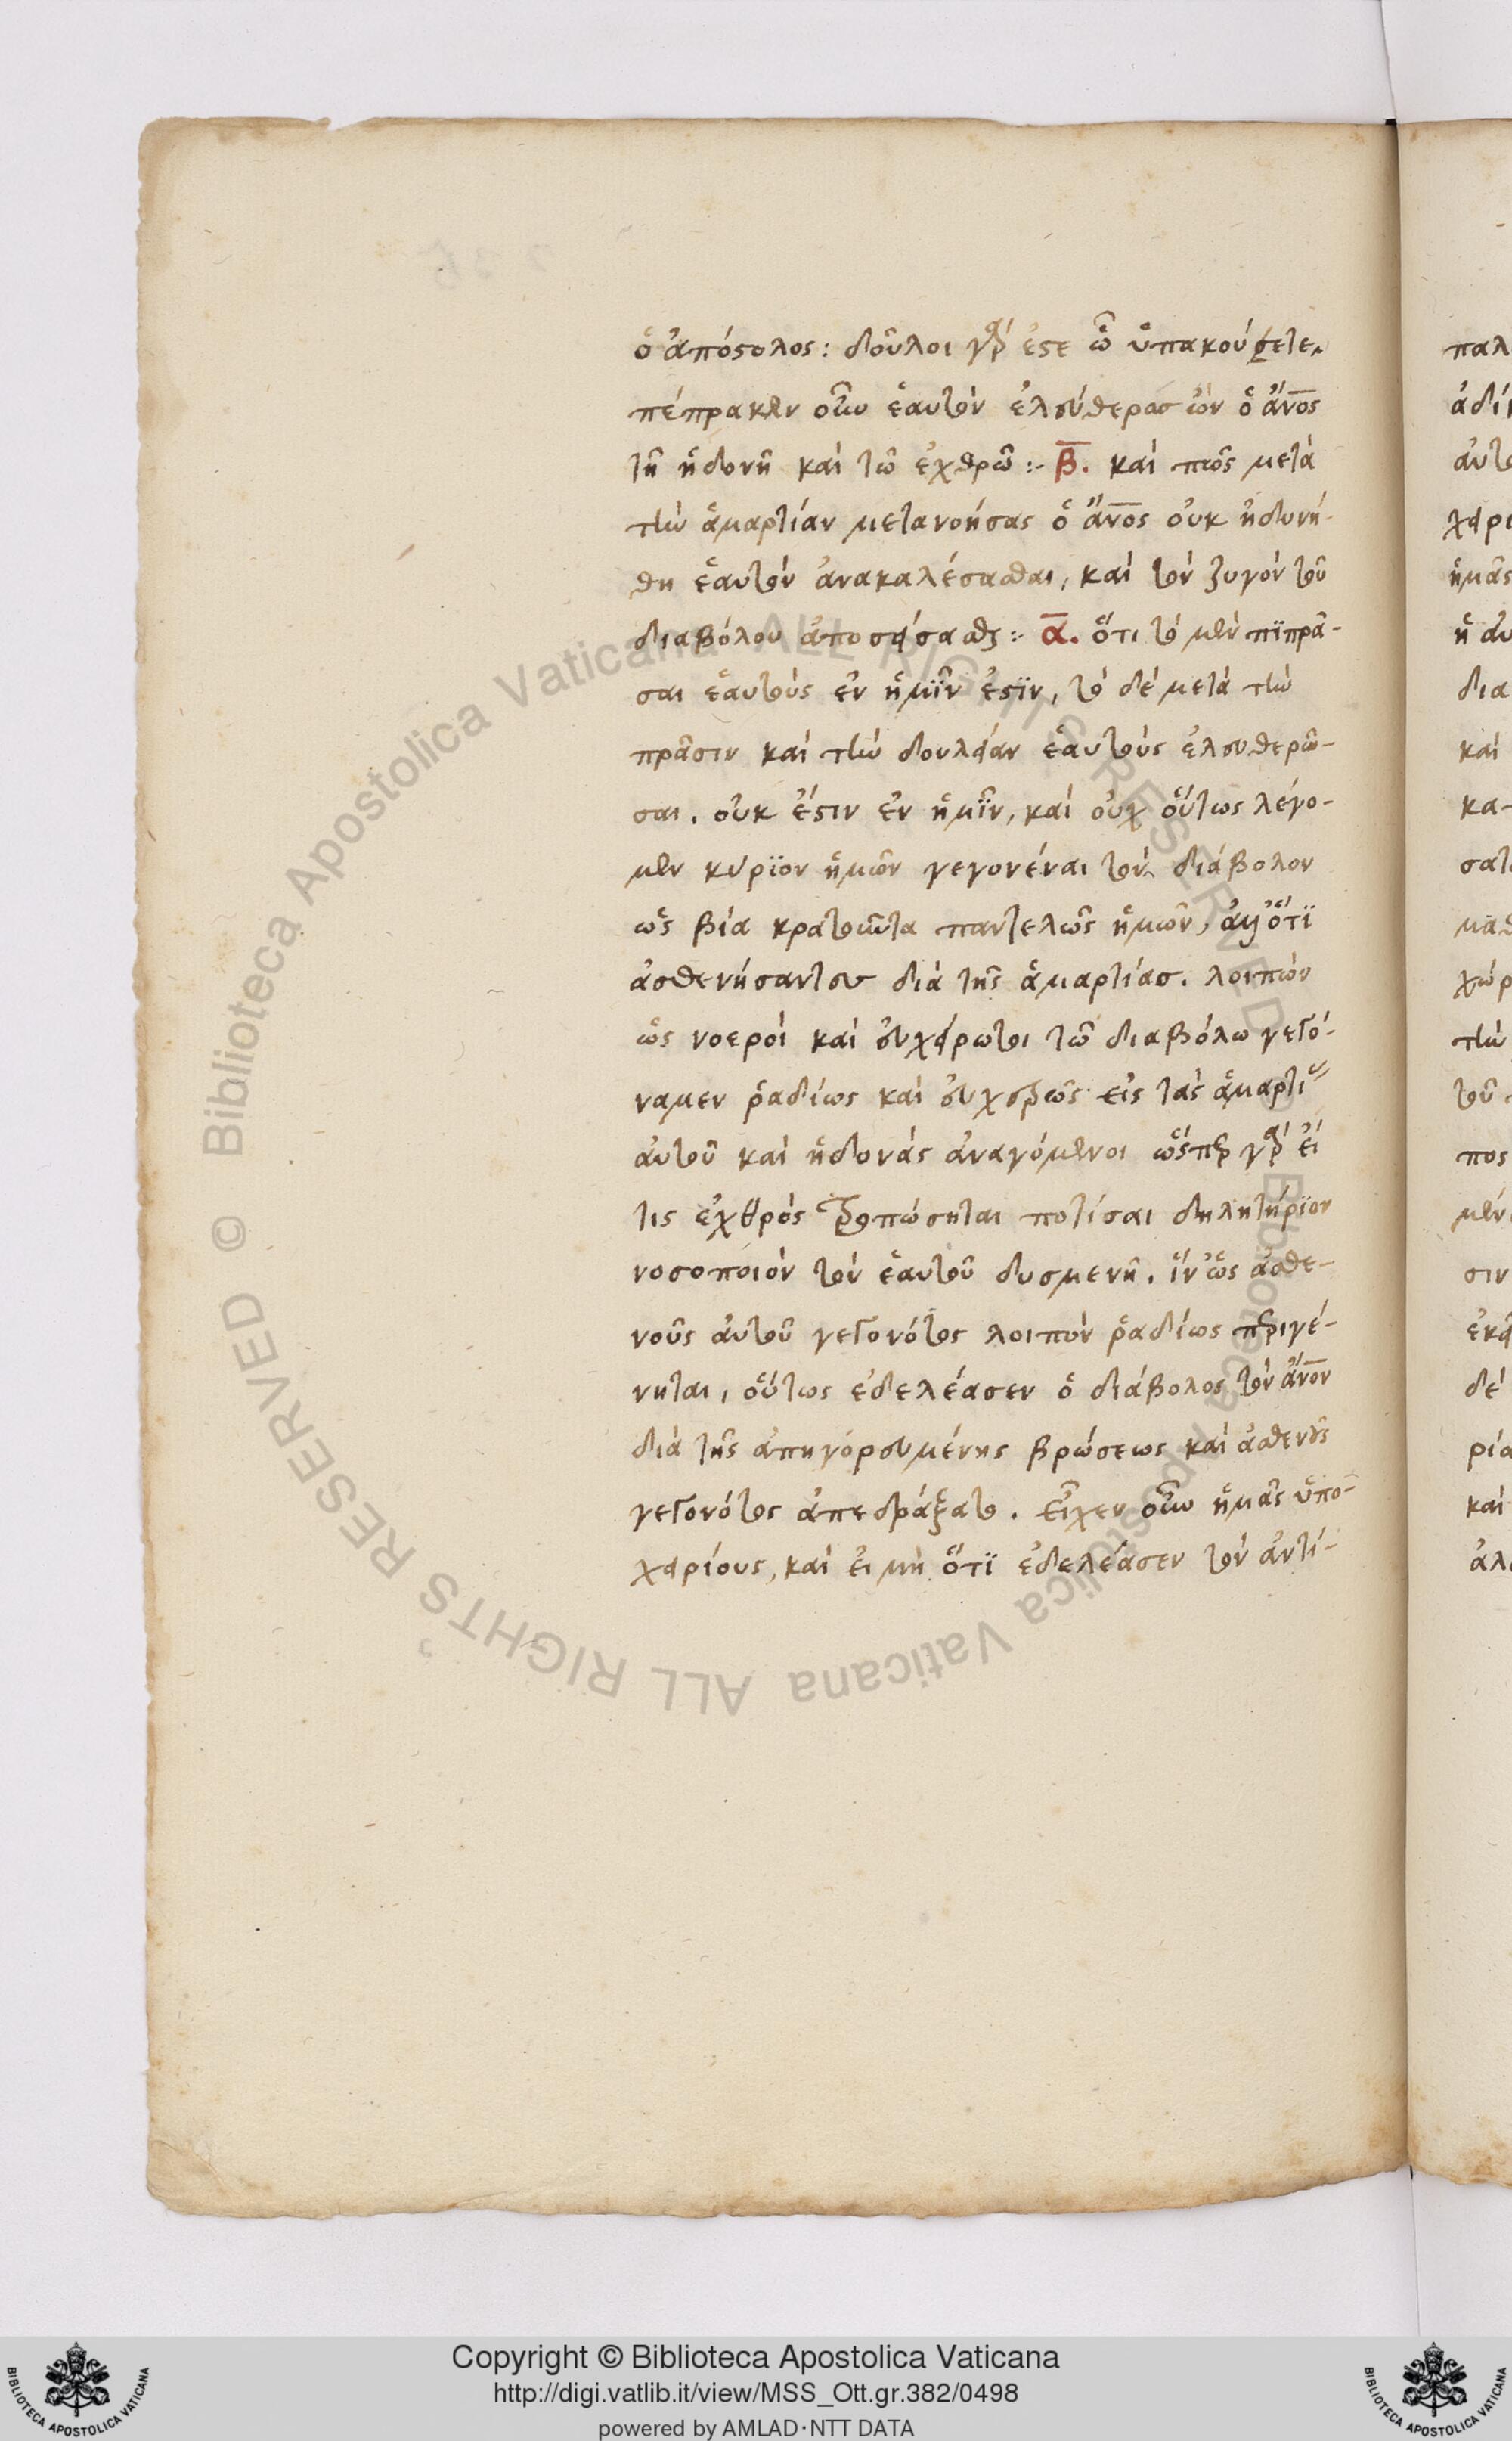 ὁ ἀπόστολος: δοῦλοι γάρ ἐστε ᾧ ὑπακούετε.
πέπρακεν οὖν ἑαυτὸν ἐλεύθερος ὢν ὁ ἄνος
τῇ ἡδονῇ καὶ τῶ ἐχθρῶ :- β. καὶ πῶς μετὰ
τὴν ἁμαρτίαν μετανοήσας ὁ ἄνος οὐκ ἠδυνή-
θη ἑαυτὸν ἀνακαλέσασθαι, καὶ τὸν ζυγὸν τοῦ
διαβόλου ἀποσείσασθαι :- α. ὅτι τὸ μὲν πϊπρᾶ-
σαι ἑαυτοὺς ἐν ἡμῖν ἐστϊν, τὸ δὲ μετὰ τὴν
πρᾶσιν καὶ τὴν δουλείαν ἑαυτοὺς ἐλευθερῶ-
σαι. οὐκ ἔστιν ἐν ἡμῖν, καὶ οὐχ οὕτως λέγο-
μεν κύρϊον ἡμῶν γεγονέναι τὸν διάβολον
ὡς βία κρατοῦντα παντελῶς ἡμῶν, ἀλλ' ὅτϊ
ἀσθενήσαντες διὰ τῆς ἁμαρτίας. λοιπὸν
ὡς νοεροὶ καὶ εὐχείρωτοι τῶ διαβόλω γεγό-
ναμεν ῥαδίως καὶ εὐχερῶς εἰς τὰς ἁμαρτίας
αὐτοῦ καὶ ἡδονὰς ἀναγόμενοι ὥσπερ γάρ εἰ
τις ἐχθρὸς πποπώσηται ποτίσαι δηλητήρϊον
νοσοποιὸν τὸν ἑαυτοῦ δυσμενῆ. ἵν' ὡς ἀσθε-
νοῦς αὐτοῦ γεγονότος λοιπὸν ῥαδίως περιγέ-
νηται, οὕτως ἐδελέασεν ὁ διάβολος τὸν ἄνον
διὰ τῆς ἀπηγορευμένης βρώσεως καὶ ἀσθενοῦς
γεγονότος ἀπεδράξατο. εἶχεν οὖν ἡμᾶς ὑπο-
χειρίους, καὶ εἰ μὴ ὅτϊ ἐδελέασεν τὸν ἀντί-
Copyright © Biblioteca Apostolica Vaticana
http://digi.vatlib.it/view/MSS_Ott.gr.382/0498
powered by AMLAD·NTT DATA